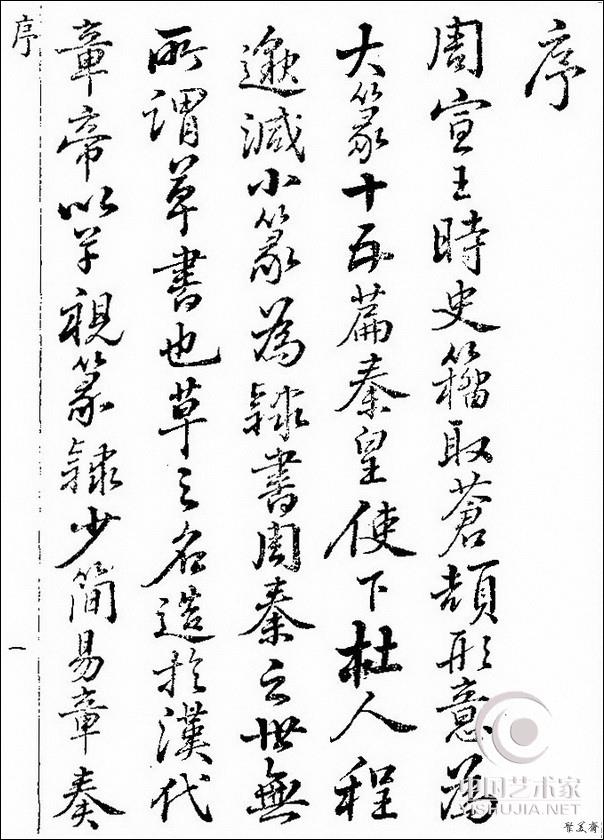 序
周宣王時史籀取蒼頡形意為
大篆十五篇秦皇使下杜人程
邈減小篆為隸書周秦之世無
所謂草書也草之名造於漢代
章帝以草視篆隸少簡易章奏
序
一
中国艺术家
YISHUJIA.NET